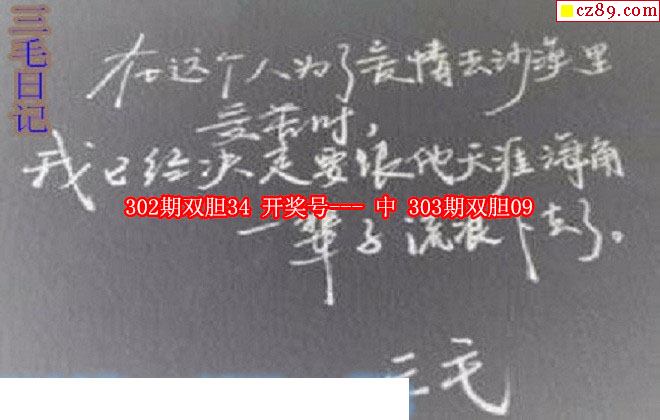 cz89.com
三毛日记
在这个人为了爱情去沙漠里
受苦时，
我已经决定要跟他天涯海角
302期双胆34 开奖号--- 中 303期双胆09
一辈子流浪下去了。
三毛